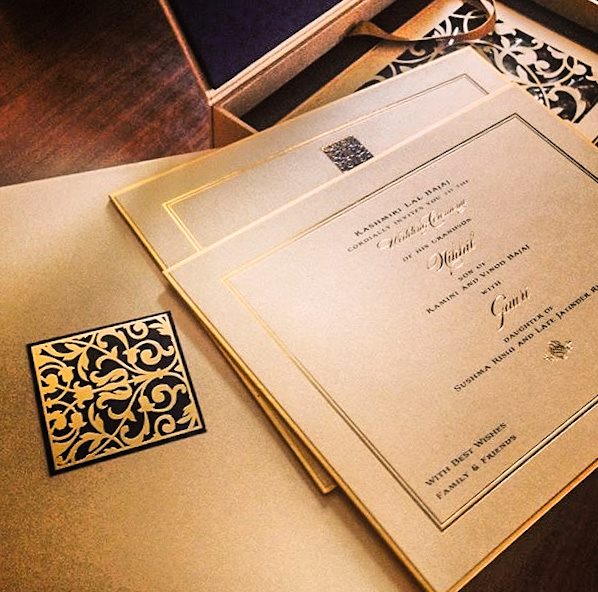 Kashmiri Lal Bajaj
cordially invites you to the
Wedding Ceremony
of his grandson
son of
Kamini and Vinod Bajaj
with
Gauri
daughter of
Sushma Rishi and Late Jatinder
With Best Wishes
Family & Friends